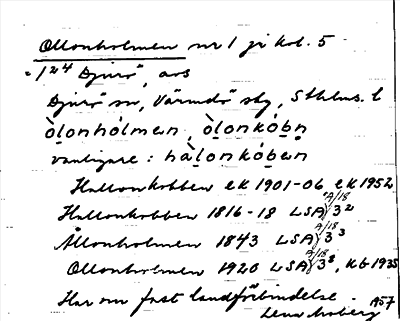 Ollonholmen nr 1 ji kol. 5
"1 24 Djurö", avs
Djurö sn, Värmdö sky, Sthlms. l
òlonhólmen, òlonkóbn
vanligare: hàlonkóben
Hallonkobben ek 1901-06 ek 1952
Hallonkobben 1816-18 LSA A/18 3²
Ållonholmen 1843 LSA A/18 3³
Ollonholmen 1920 LSA A/18 3⁸, KG 1935
Har om fast landförbindelse.
Lena Moberg 1957